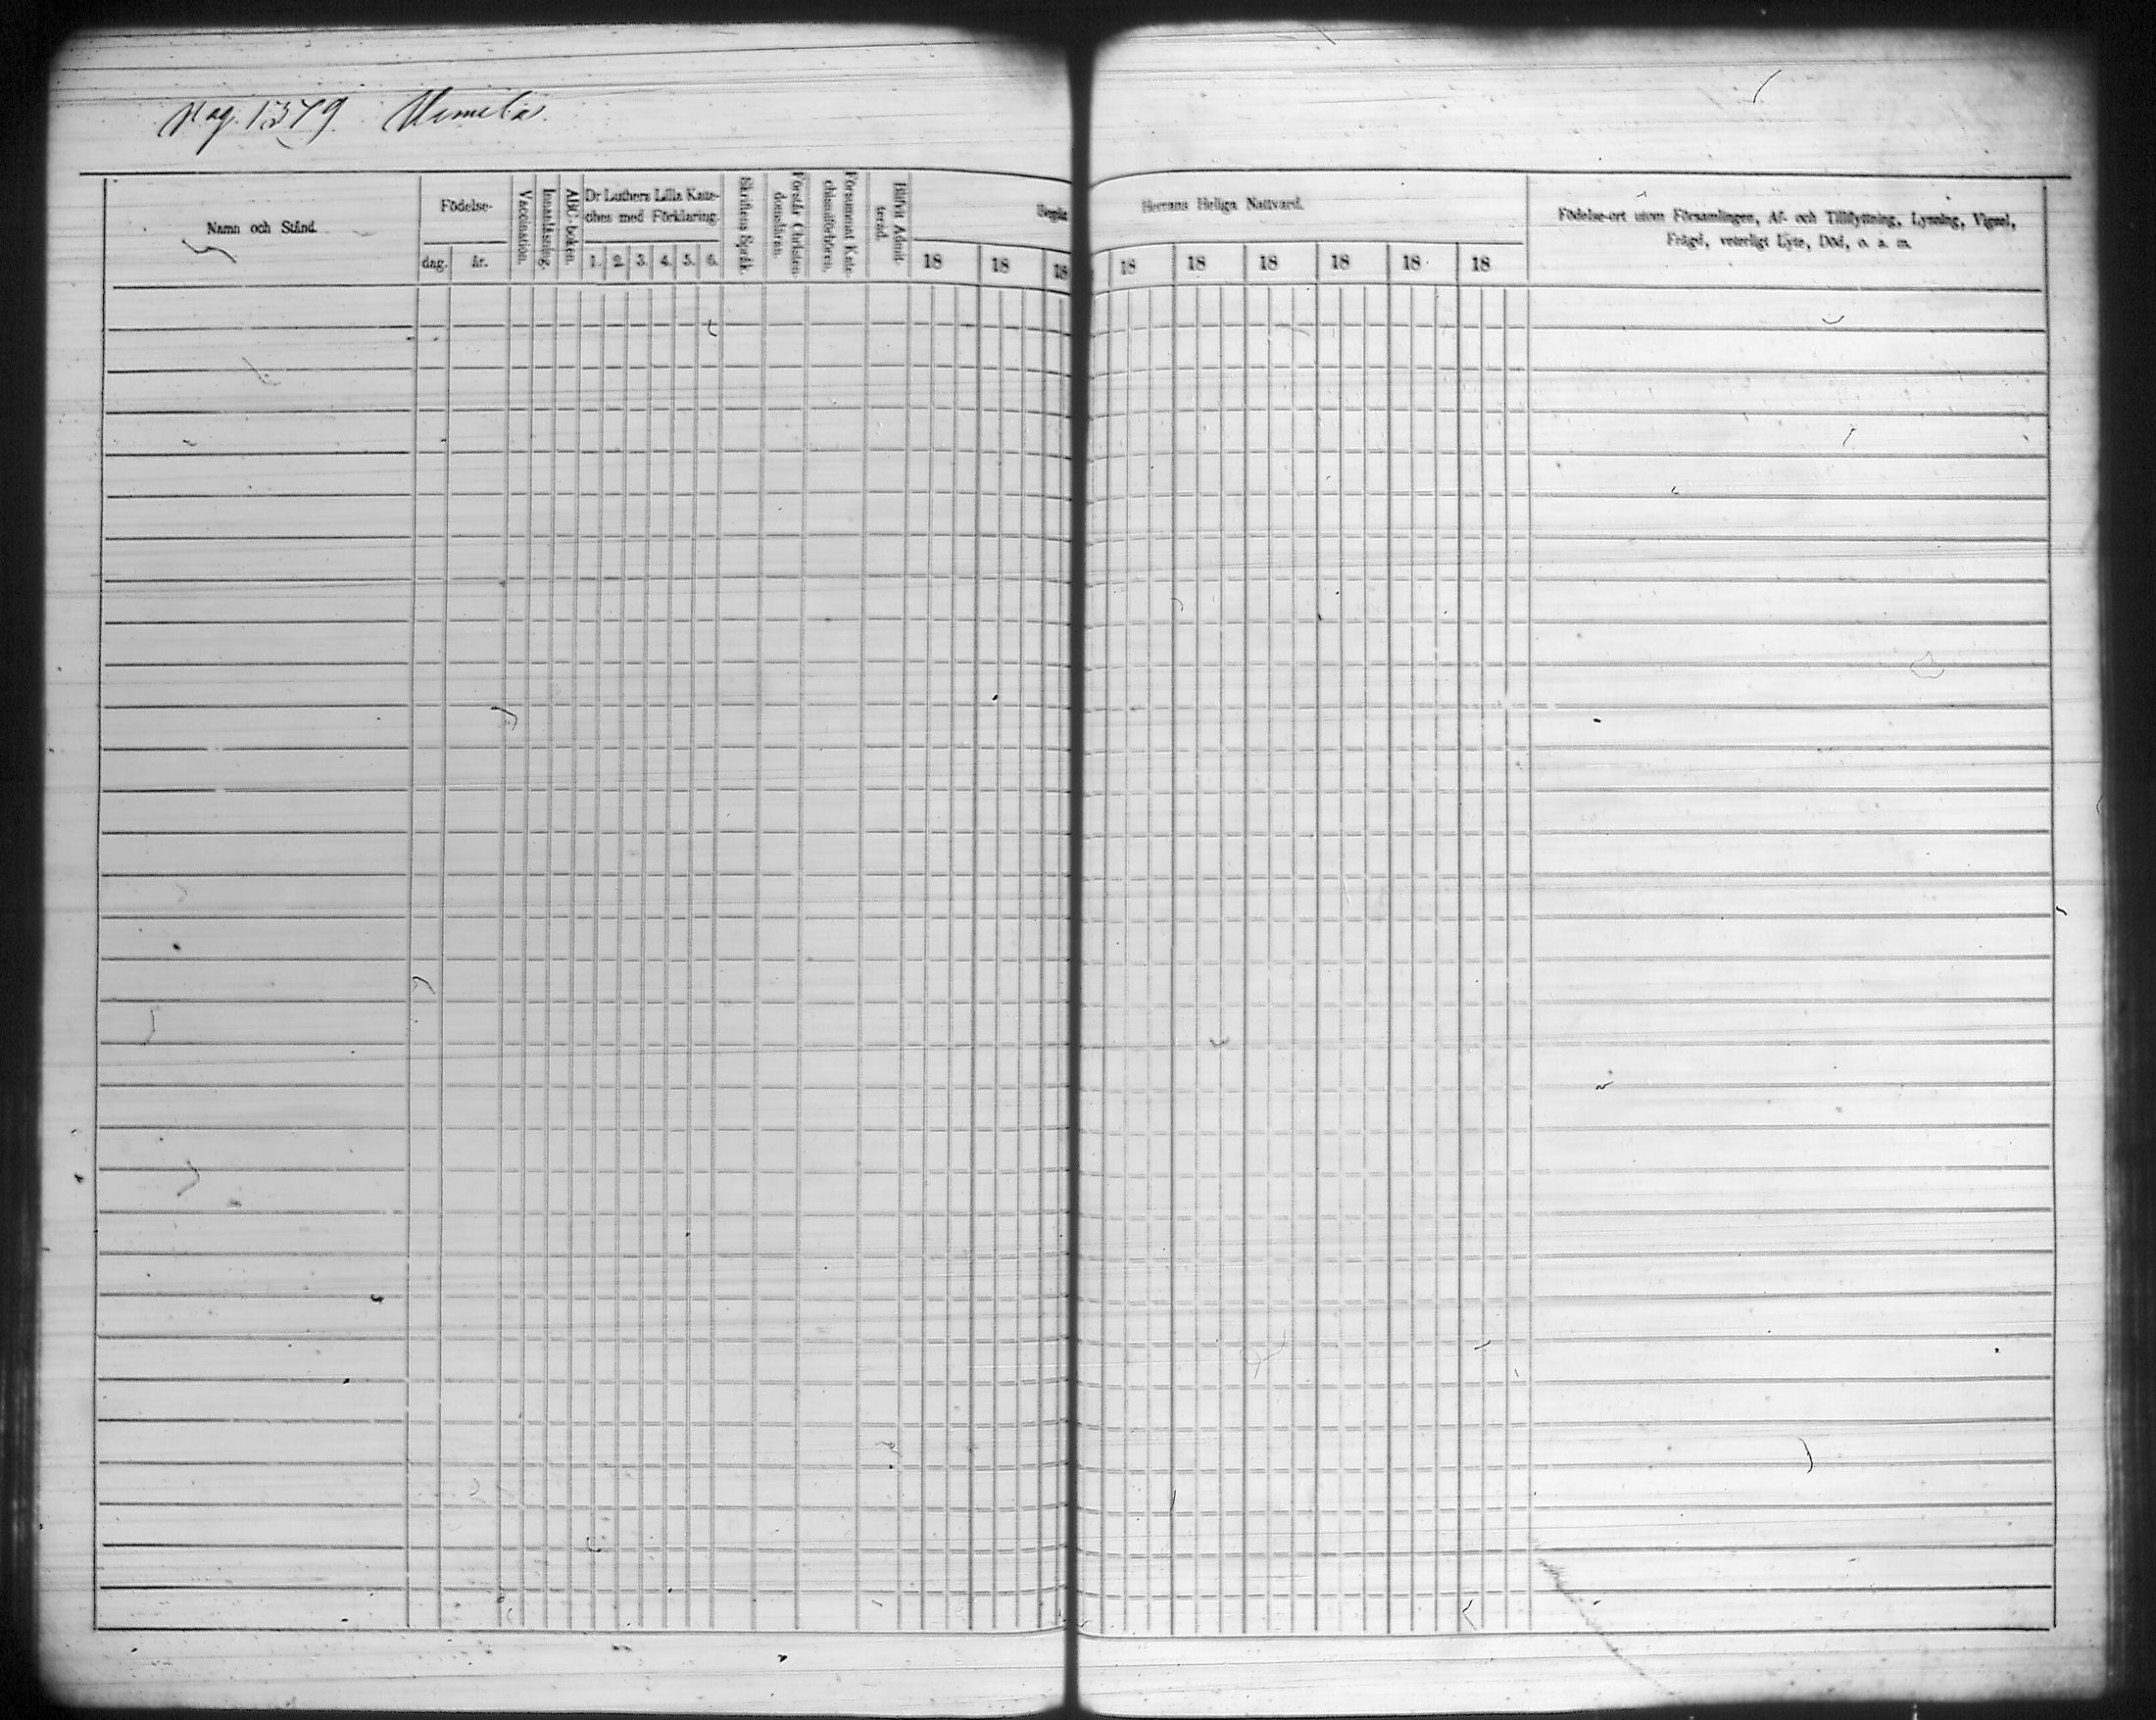 Pag. 1379.
Namn och Stånd.
Födelse-
dag.
år.
Vaccination.
Innanläsning.
ABC-boken.
Dr Luthers Lilla Kate-
ches med Förklaring.
1. 2. 3. 4. 5. 6.
Skriftens Språk.
Förstår Christen-
domsläran.
Försummat Kate-
chismiförhören.
Blifvit Admit-
terad.
Herrans Heliga Nattvard.
18 18 18 18 18 18 18 18 18
Födelse-ort utom Församlingen, Af- och Tillflyttning, Lysning, Vigsel,
Frägd, veterligt Lyte, Död, o. a. m.